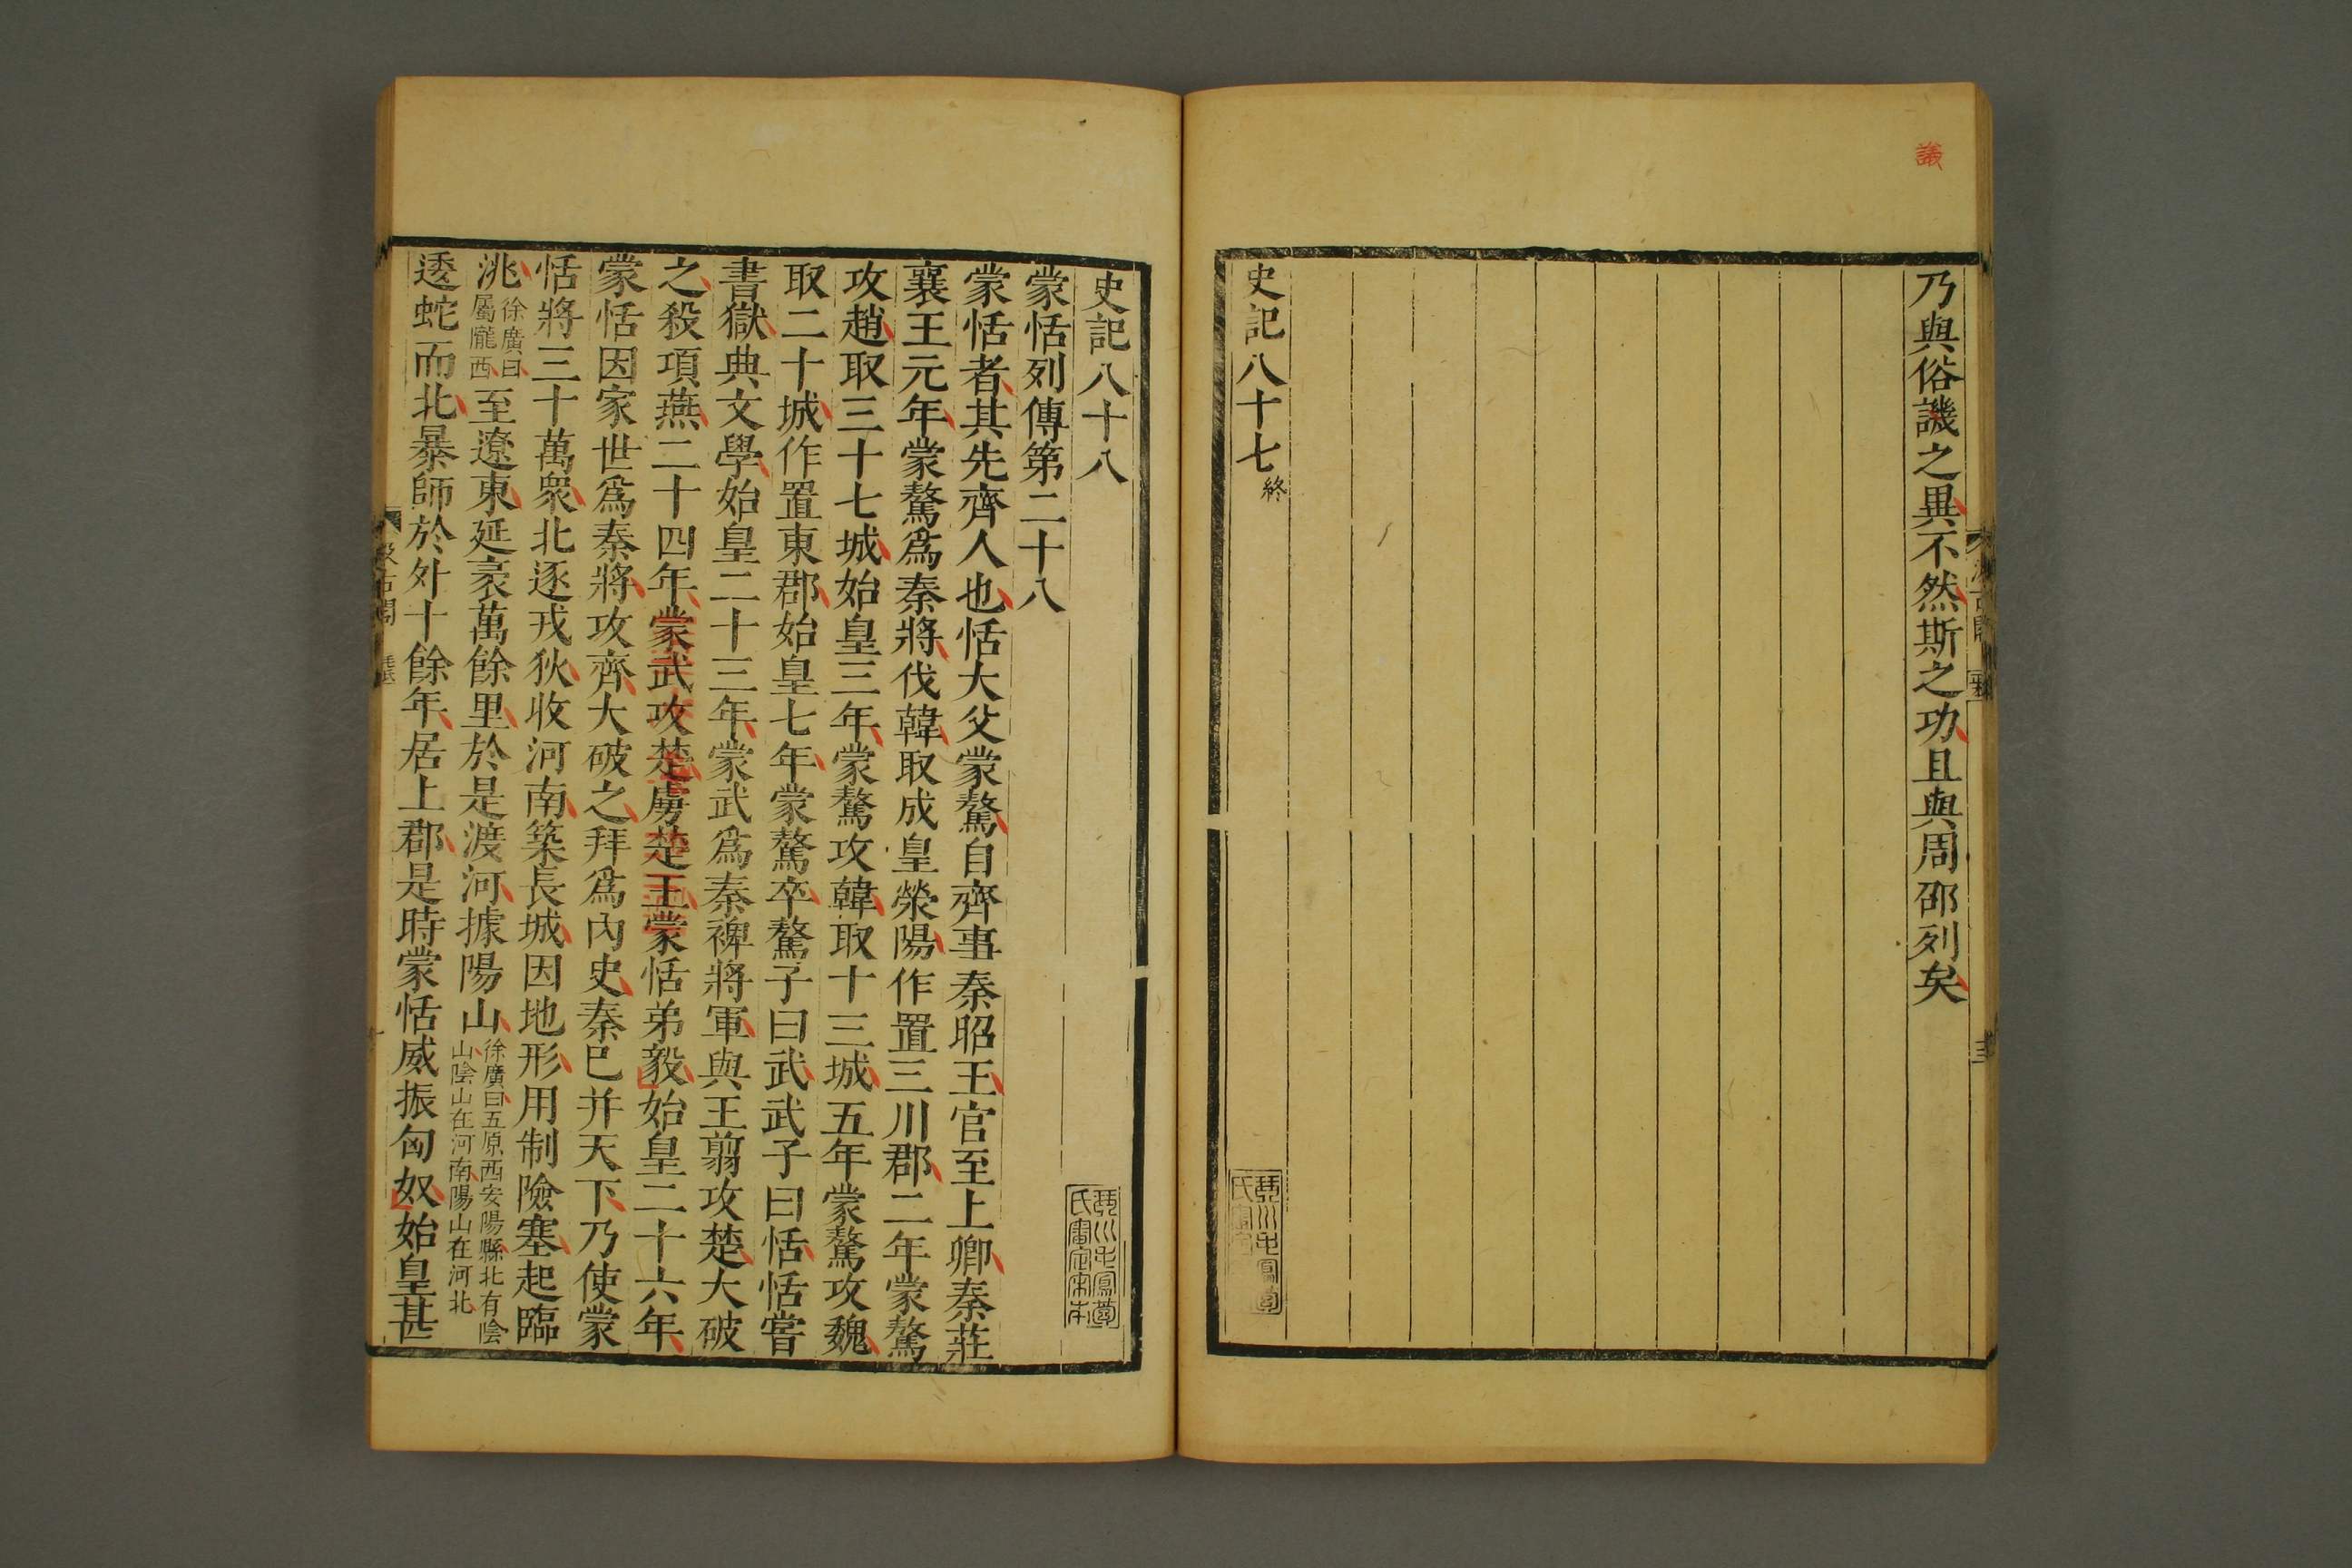 議
乃與俗譏之異不然斯之功且與周邵列矣
史記八十七終
史記八十八
蒙恬列傳第二十八
蒙恬者其先齊人也恬大父蒙驁自齊事秦昭王官至上卿秦莊
襄王元年蒙驁爲秦將伐韓取成皐滎陽作置三川郡二年蒙驁
攻趙取三十七城始皇三年蒙驁攻韓取十三城五年蒙驁攻魏
取二十城作置東郡始皇七年蒙驁卒驁子曰武武子曰恬恬嘗
書獄典文學始皇二十三年蒙武爲秦裨將軍與王翦攻楚大破
之殺項燕二十四年蒙武攻楚虜楚王蒙恬弟毅始皇二十六年
蒙恬因家世爲秦將攻齊大破之拜爲內史秦已并天下乃使蒙
恬將三十萬衆北逐戎狄收河南築長城因地形用制險塞起臨
洮徐廣曰屬隴西至遼東延袤萬餘里於是渡河據陽山徐廣曰五原西安陽縣北有陰山陰山在河南陽山在河北
逶蛇而北暴師於外十餘年居上郡是時蒙恬威振匈奴始皇甚
汲古閣